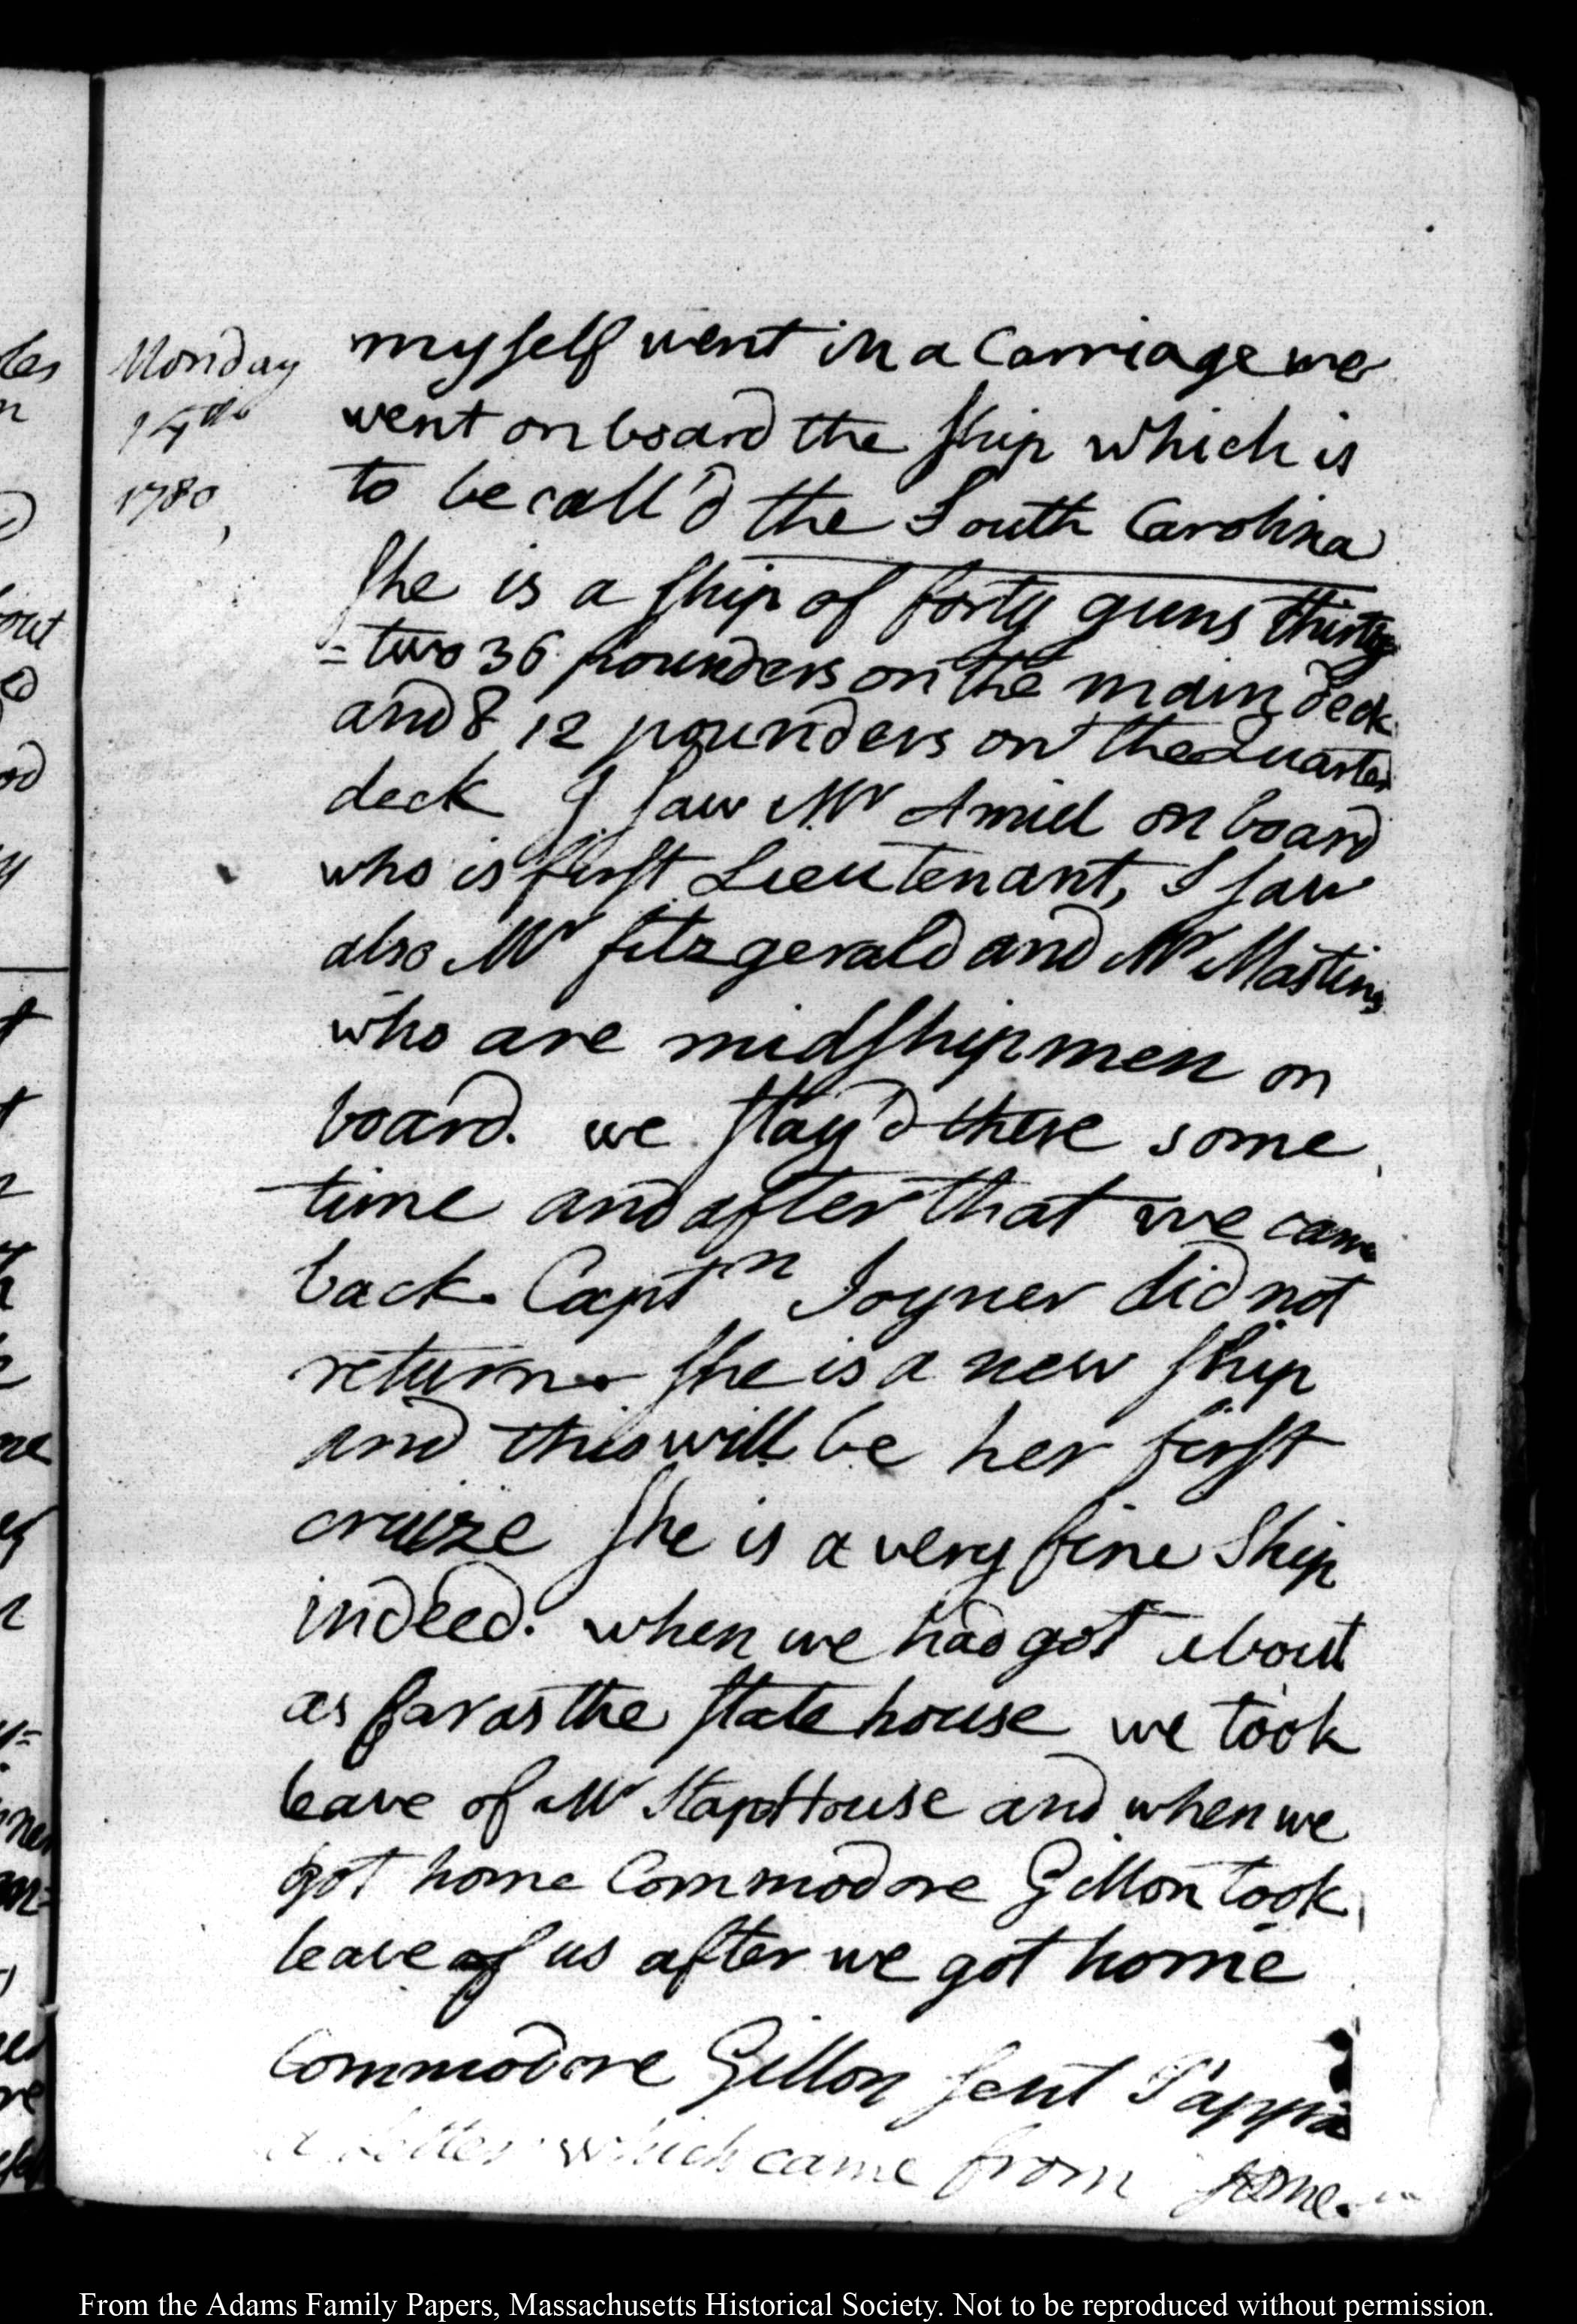 Monday
14th
1780,
myself went in a Carriage we
went on board the ship which is
to be call'd the South Carolina
she is a ship of forty guns thirty
=two 36 pounders on the main deck
and 8 12 pounders on the Quarter
deck I saw Mr Amiel on board
who is first Lieutenant, I saw
also Mr fitzgerald and Mr Masting
who are midshipmen on
board. we stay'd there some
time and after that we came
back. Captn Joyner did not
return she is a new ship
and this will be her first
cruize she is a very fine Ship
indeed. when we had got about
as far as the state house we took
leave of Mr StapHouse and when we
got home Commodore Gillon took
leave of us after we got home
Commodore Gillon sent Pappa
a letter which came from some
From the Adams Family Papers, Massachusetts Historical Society. Not to be reproduced without permission.